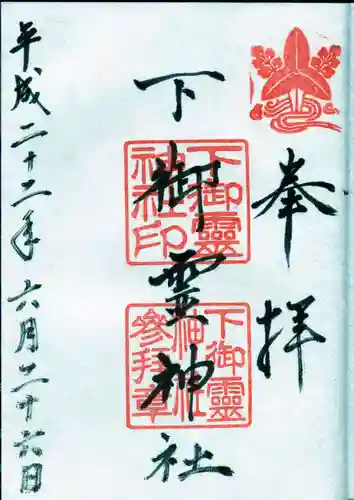 奉拝
下御霊神社
下御靈神社印
下御靈神社參拜章
平成二十二年六月二十六日